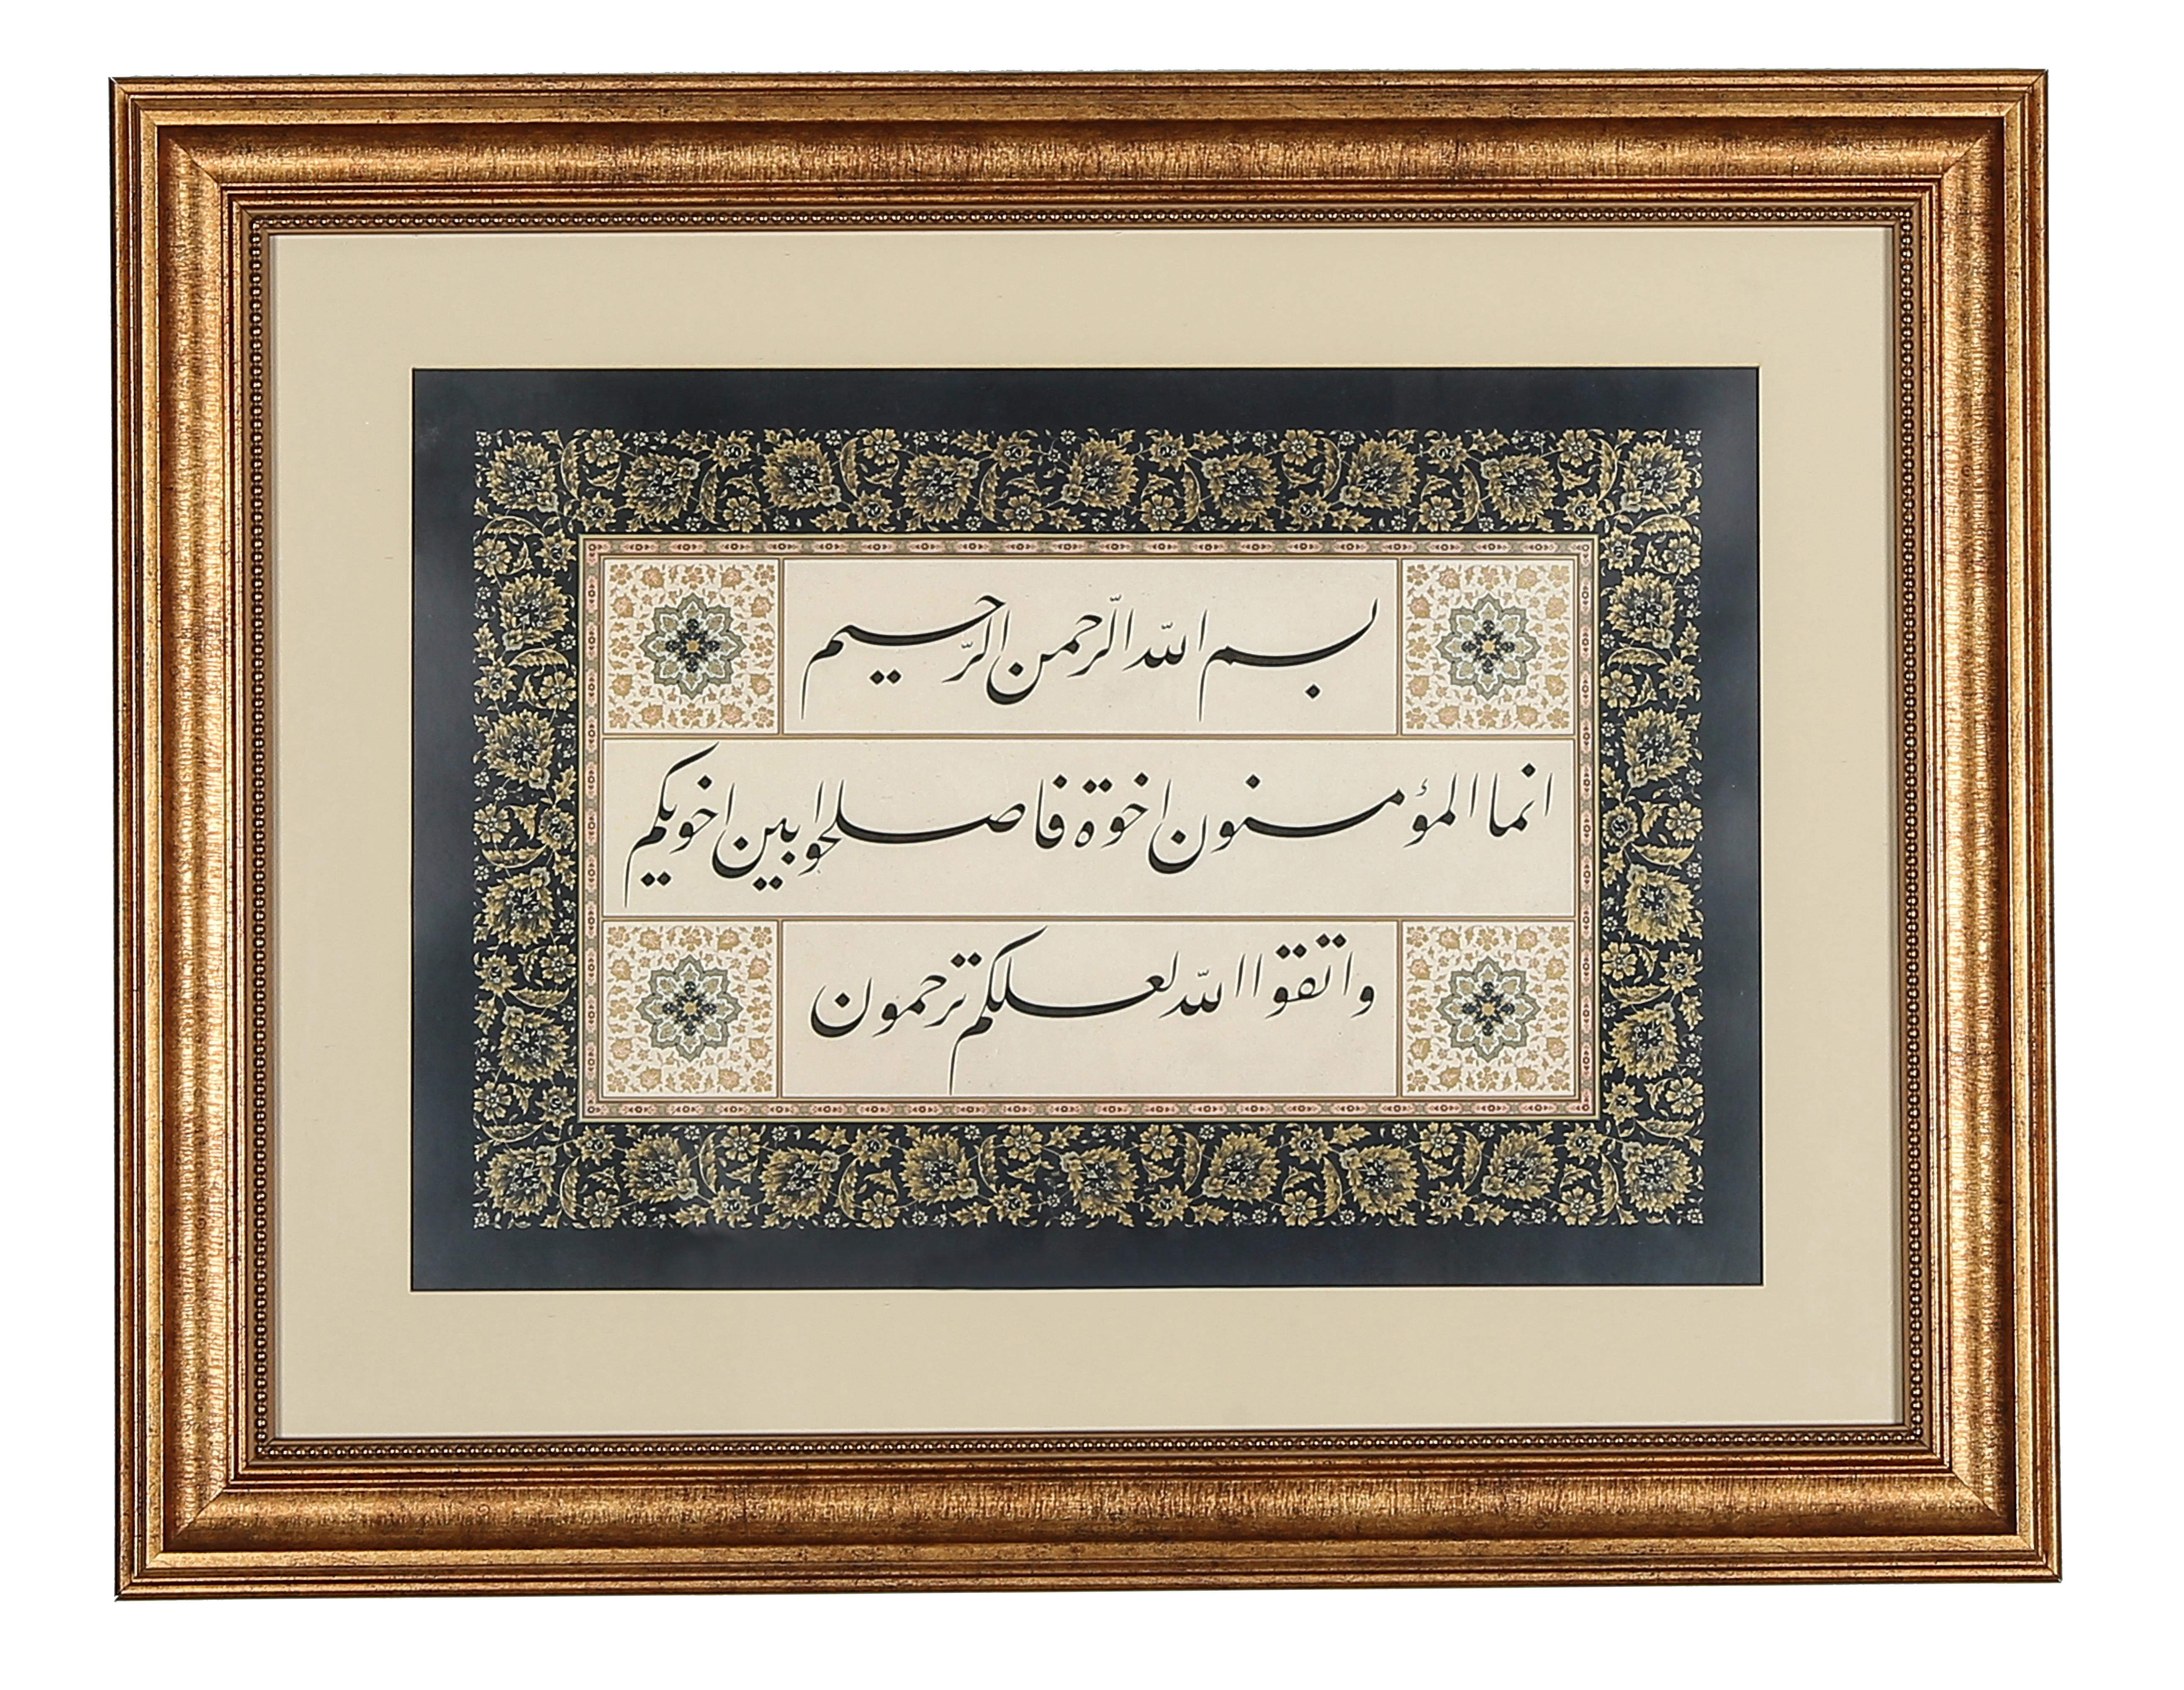 بسم الله الرّحمن الرّحيم
انما المؤمنون اخوة فاصلحوا بين اخويكم
واتقوا الله لعلكم ترحمون